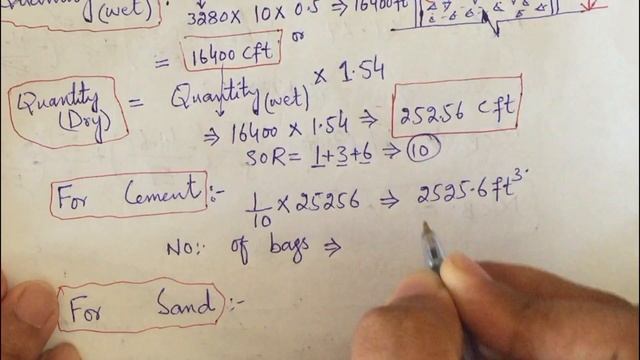 (wet) :-
3280 x 10 x 0.5 ⇒ 16400 ft³
= 16400 Cft or
Quantity (Dry) = Quantity (wet) x 1.54
⇒ 16400 x 1.54 ⇒ 25256 Cft
SOR = 1+3+6 ⇒ 10
For Cement :- 1/10 x 25256 ⇒ 2525.6 ft³.
No:- of bags ⇒
For Sand :-